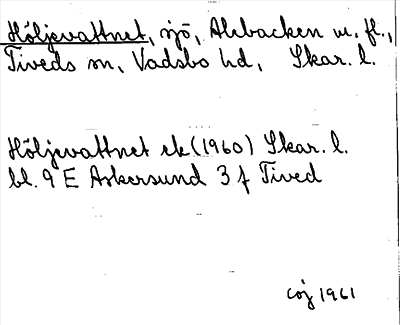 Höljevattnet, sjö, Ahbacken m. fl.,
Tiveds sn, Vadsbo hd, Skar. l.
Höljevattnet ek (1960) Skar. l.
bl. 9 E Askersund 3 f Tived
coj 1961